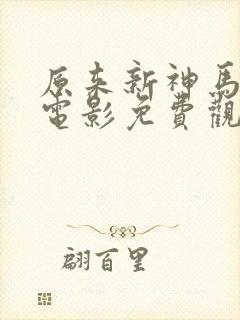 原来新神馬
電影免費觀
翩百里